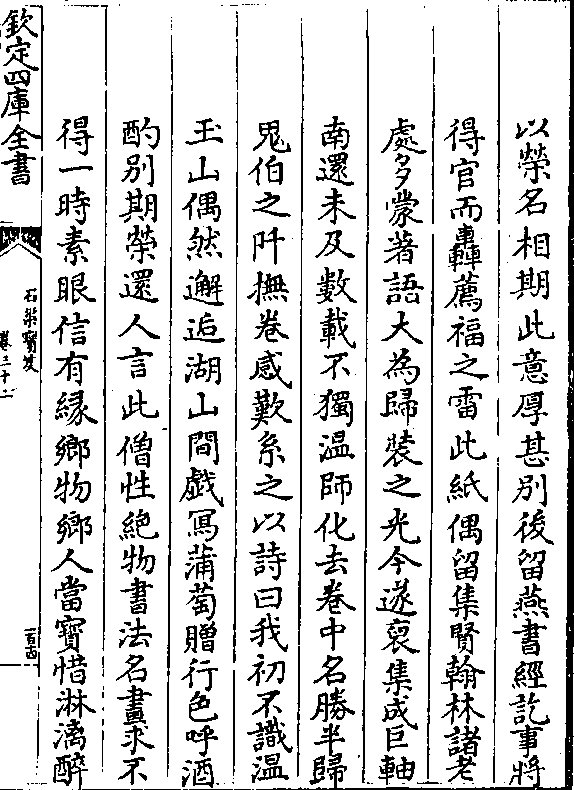 以榮名相期此意厚甚别後留燕書經訖事將
得官而轟薦福之雷此紙偶留集賢翰林諸老
處多蒙著語大為歸裝之光今遂裒集成巨軸
南還未及數載不獨温師化去卷中名勝半歸
鬼伯之阡撫卷感歎系之以詩曰我初不識温
玉山偶然邂逅湖山間戯寫蒲萄贈行色呼酒
酌别期榮還人言此僧性絶物書法名畫求不
得一時素眼信有縁鄉物鄉人當寳惜淋漓醉
欽定四庫全書
石渠寳笈
卷三十二